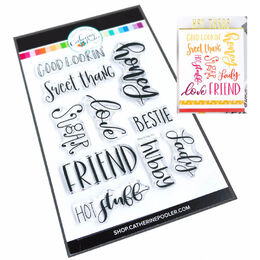 GOOD LOOKIN'
Sweet thang
honey
SUGAR
love
BESTIE
lady
FRIEND
hubby
HOT stuff
SHOP.CATHERINEPOOLER.COM
HEY THERE
GOOD LOOKIN'
Sweet thang
honey
SUGAR
HOT stuff
lady
love FRIEND